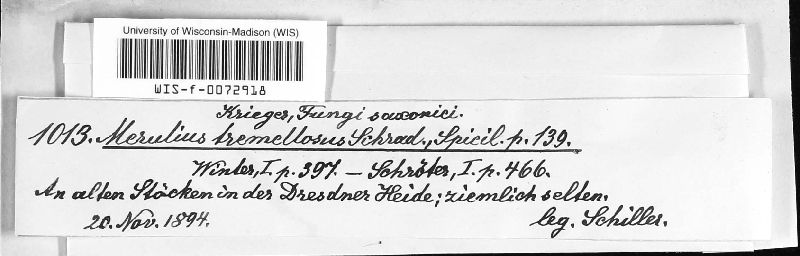 University of Wisconsin-Madison (WIS)
WIS-f-0072918
Krieger, Fungi saxonici.
1013. Merulius tremellosus Schrad., Spicil. p. 139.
Winter, I. p. 397. — Schröter, I. p. 466.
An alten Stöcken in der Dresdner Heide; ziemlich selten.
20. Nov. 1894. leg. Schiller.